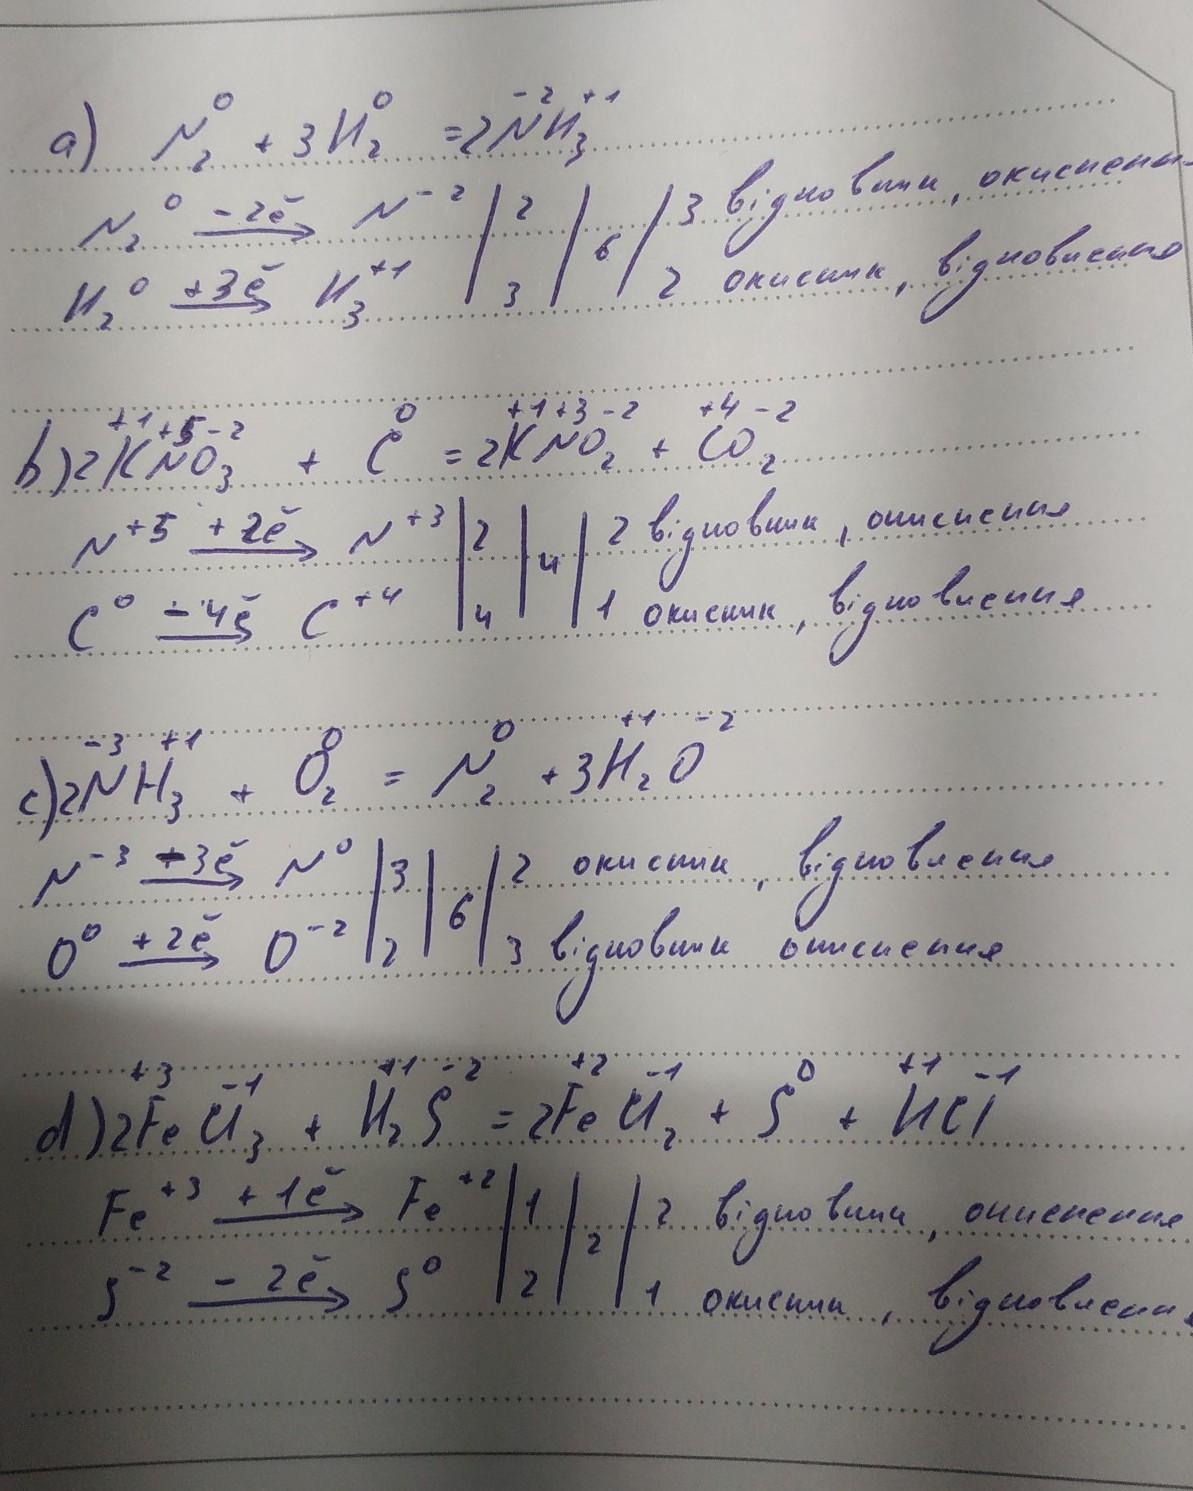 a) N₂⁰ + 3H₂⁰ = 2N⁻²H₃⁺¹
N₂⁰ -2ē→ N⁻² | 2 | 6 | 3 відновник, окиснен
H₂⁰ +3ē→ H₃⁺¹ | 3 | | 2 окисник, відновлення
b) 2K⁺¹N⁺⁵O₃⁻² + C⁰ = 2K⁺¹N⁺³O₂⁻² + C⁺⁴O₂⁻²
N⁺⁵ +2ē→ N⁺³ | 2 | 4 | 2 відновник, окиснення
C⁰ -4ē→ C⁺⁴ | 4 | | 1 окисник, відновлення
c) 2N⁻³H₃⁺¹ + O₂⁰ = N₂⁰ + 3H₂⁺¹O⁻²
N⁻³ -3ē→ N⁰ | 3 | 6 | 2 окисник, відновлення
O⁰ +2ē→ O⁻² | 2 | | 3 відновник окиснення
d) 2Fe⁺³Cl₃⁻¹ + H₂⁺¹S⁻² = 2Fe⁺²Cl₂⁻¹ + S⁰ + H⁺¹Cl⁻¹
Fe⁺³ +1ē→ Fe⁺² | 1 | 2 | 2 відновник, окиснення
S⁻² -2ē→ S⁰ | 2 | | 1 окисник, відновленн